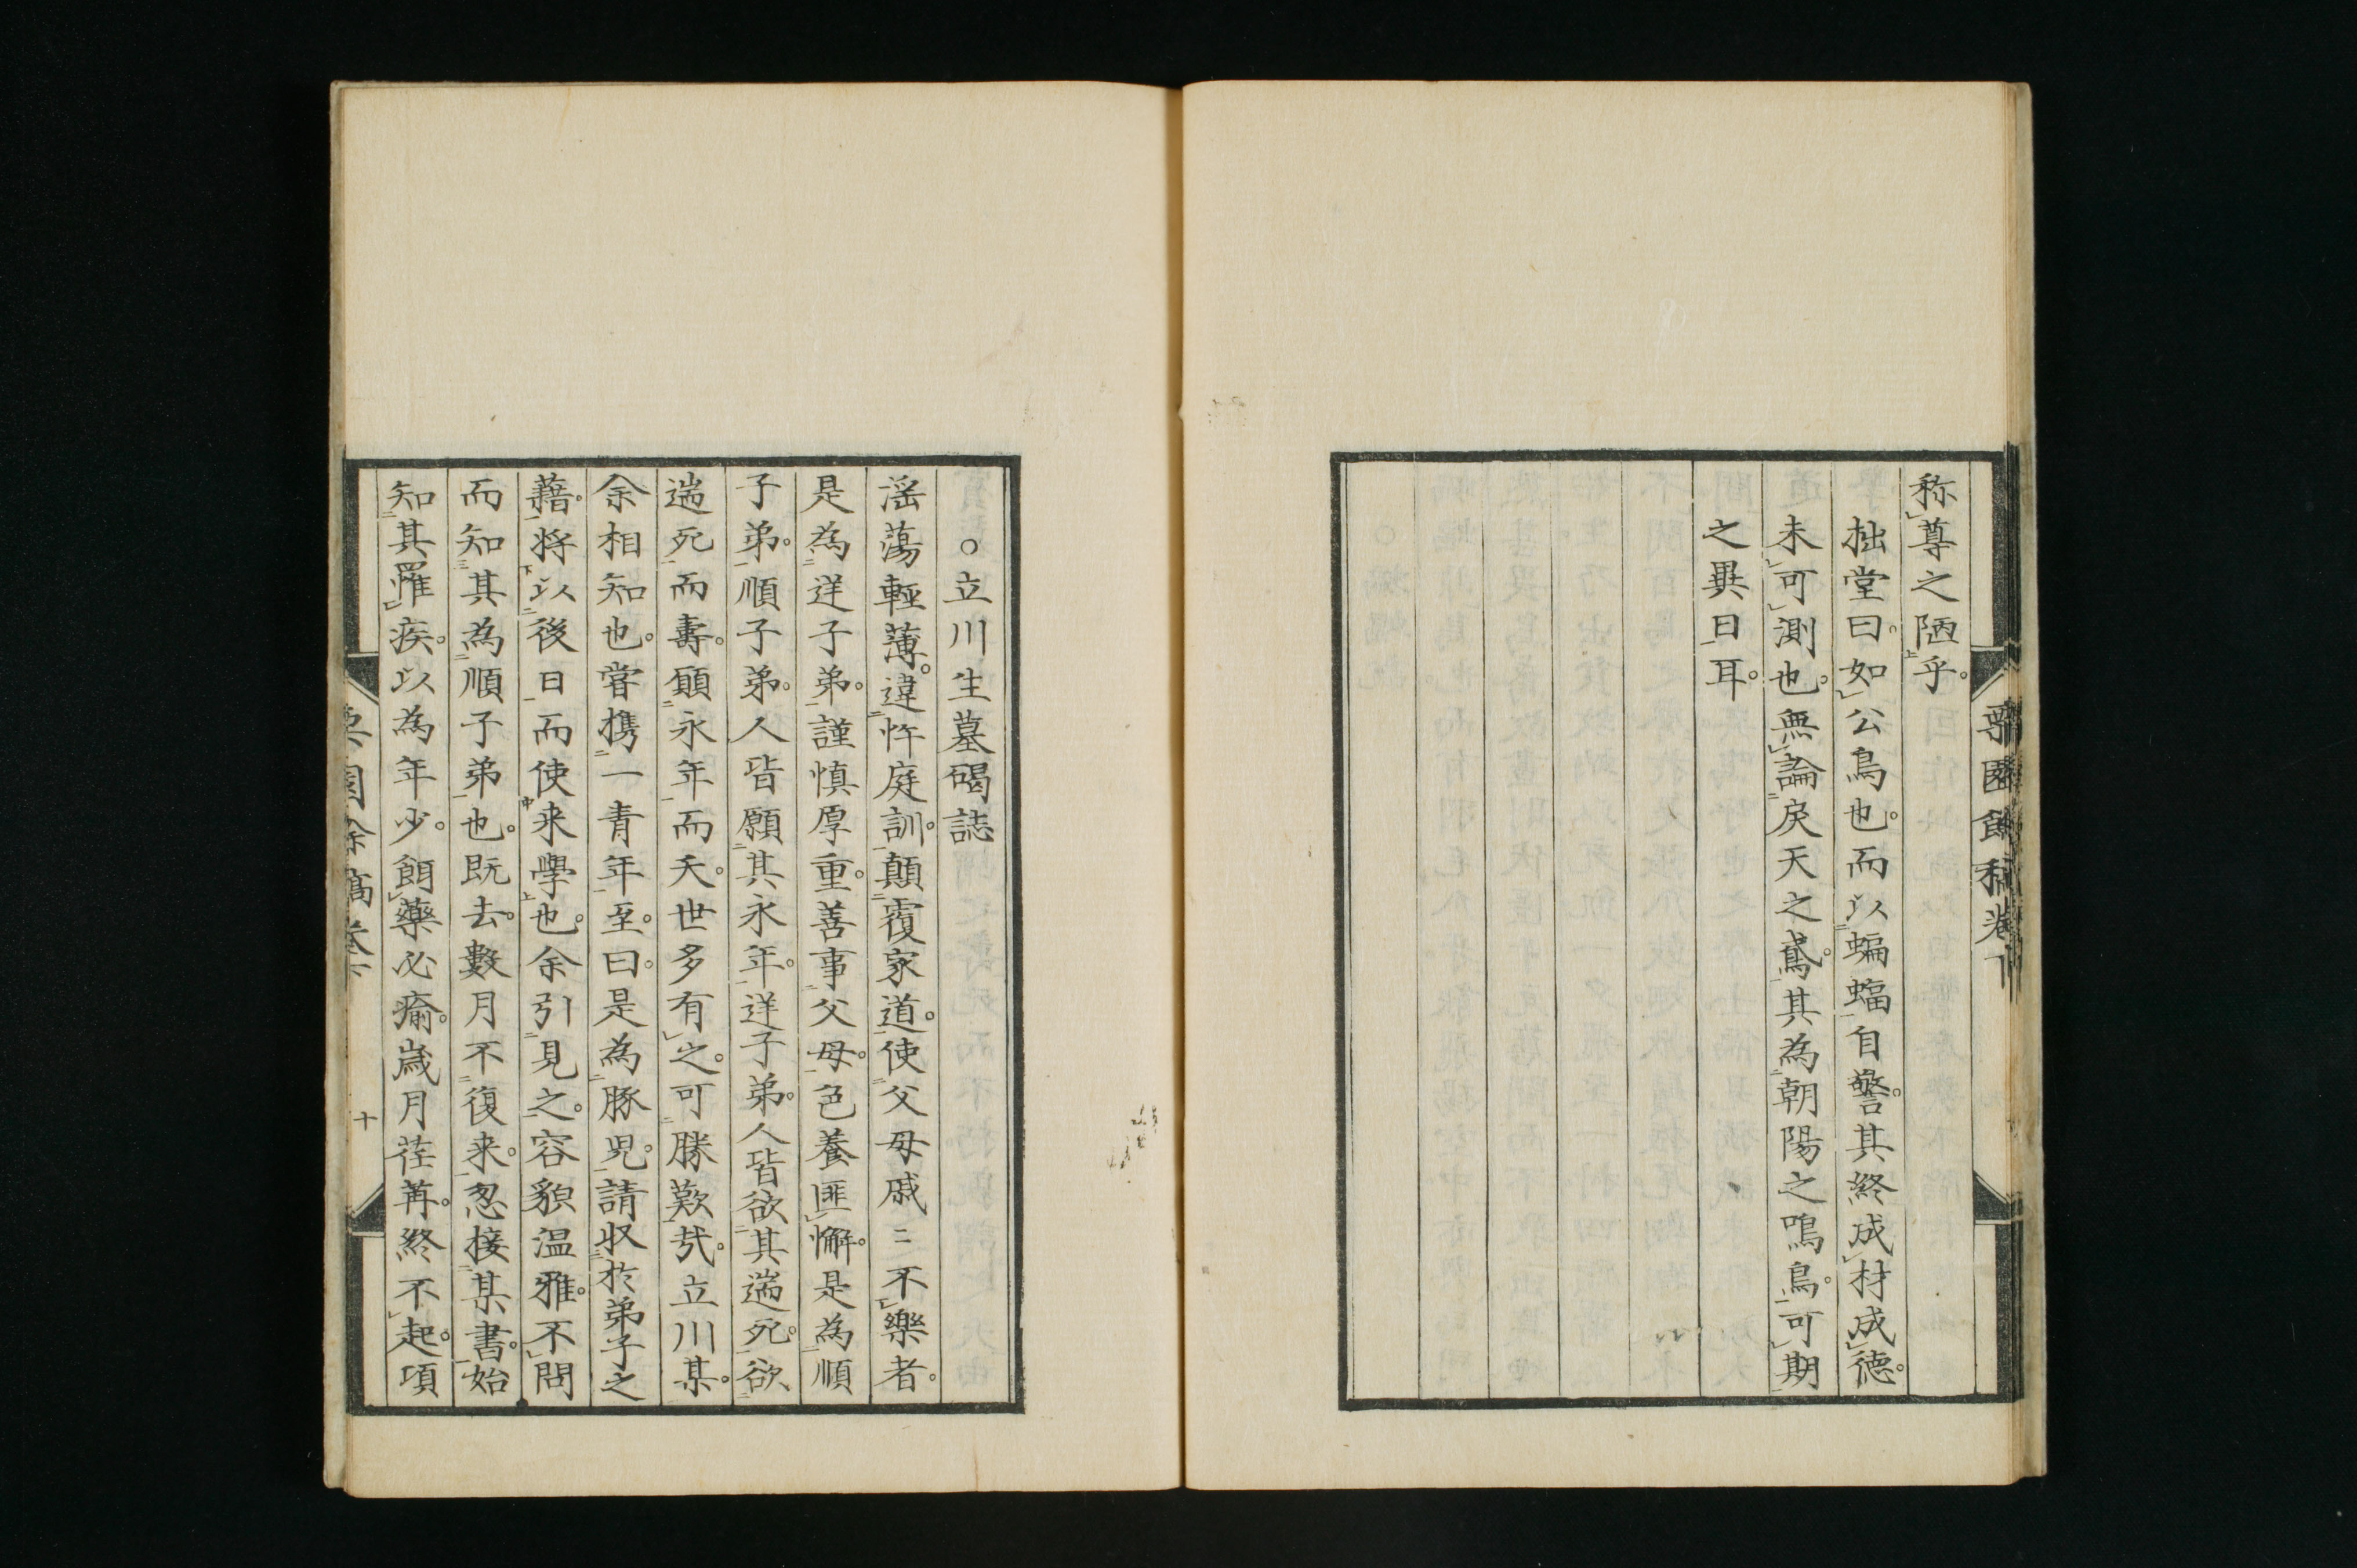 称尊之陋乎。
拙堂曰。如公鳥也。而以蝙蝠自警。其終成材成德。
未可測也。無論戾天之鳶。其為朝陽之鳴鳥。可期
之異日耳。
園餘稿卷下
○立川生墓碣誌
淫蕩輕薄。違忤庭訓。顛覆家道。使父母戚〻不樂者。
是為逆子弟。謹慎厚重。善事父母。色養匪懈。是為順
子弟。順子弟。人皆願其永年。逆子弟。人皆欲其遄死。欲
遄死而壽。願永年而夭。世多有之。可勝歎哉。立川某。
余相知也。嘗携一青年至。曰。是為豚児。請収於弟子之
藉。将以後日而使来學也。余引見之。容貌温雅。不問
而知其為順子弟也。既去。數月不復来。忽接某書。始
知其罹疾。以為年少。餌藥必瘉。歳月荏苒。終不起。項
園餘稿卷下
十